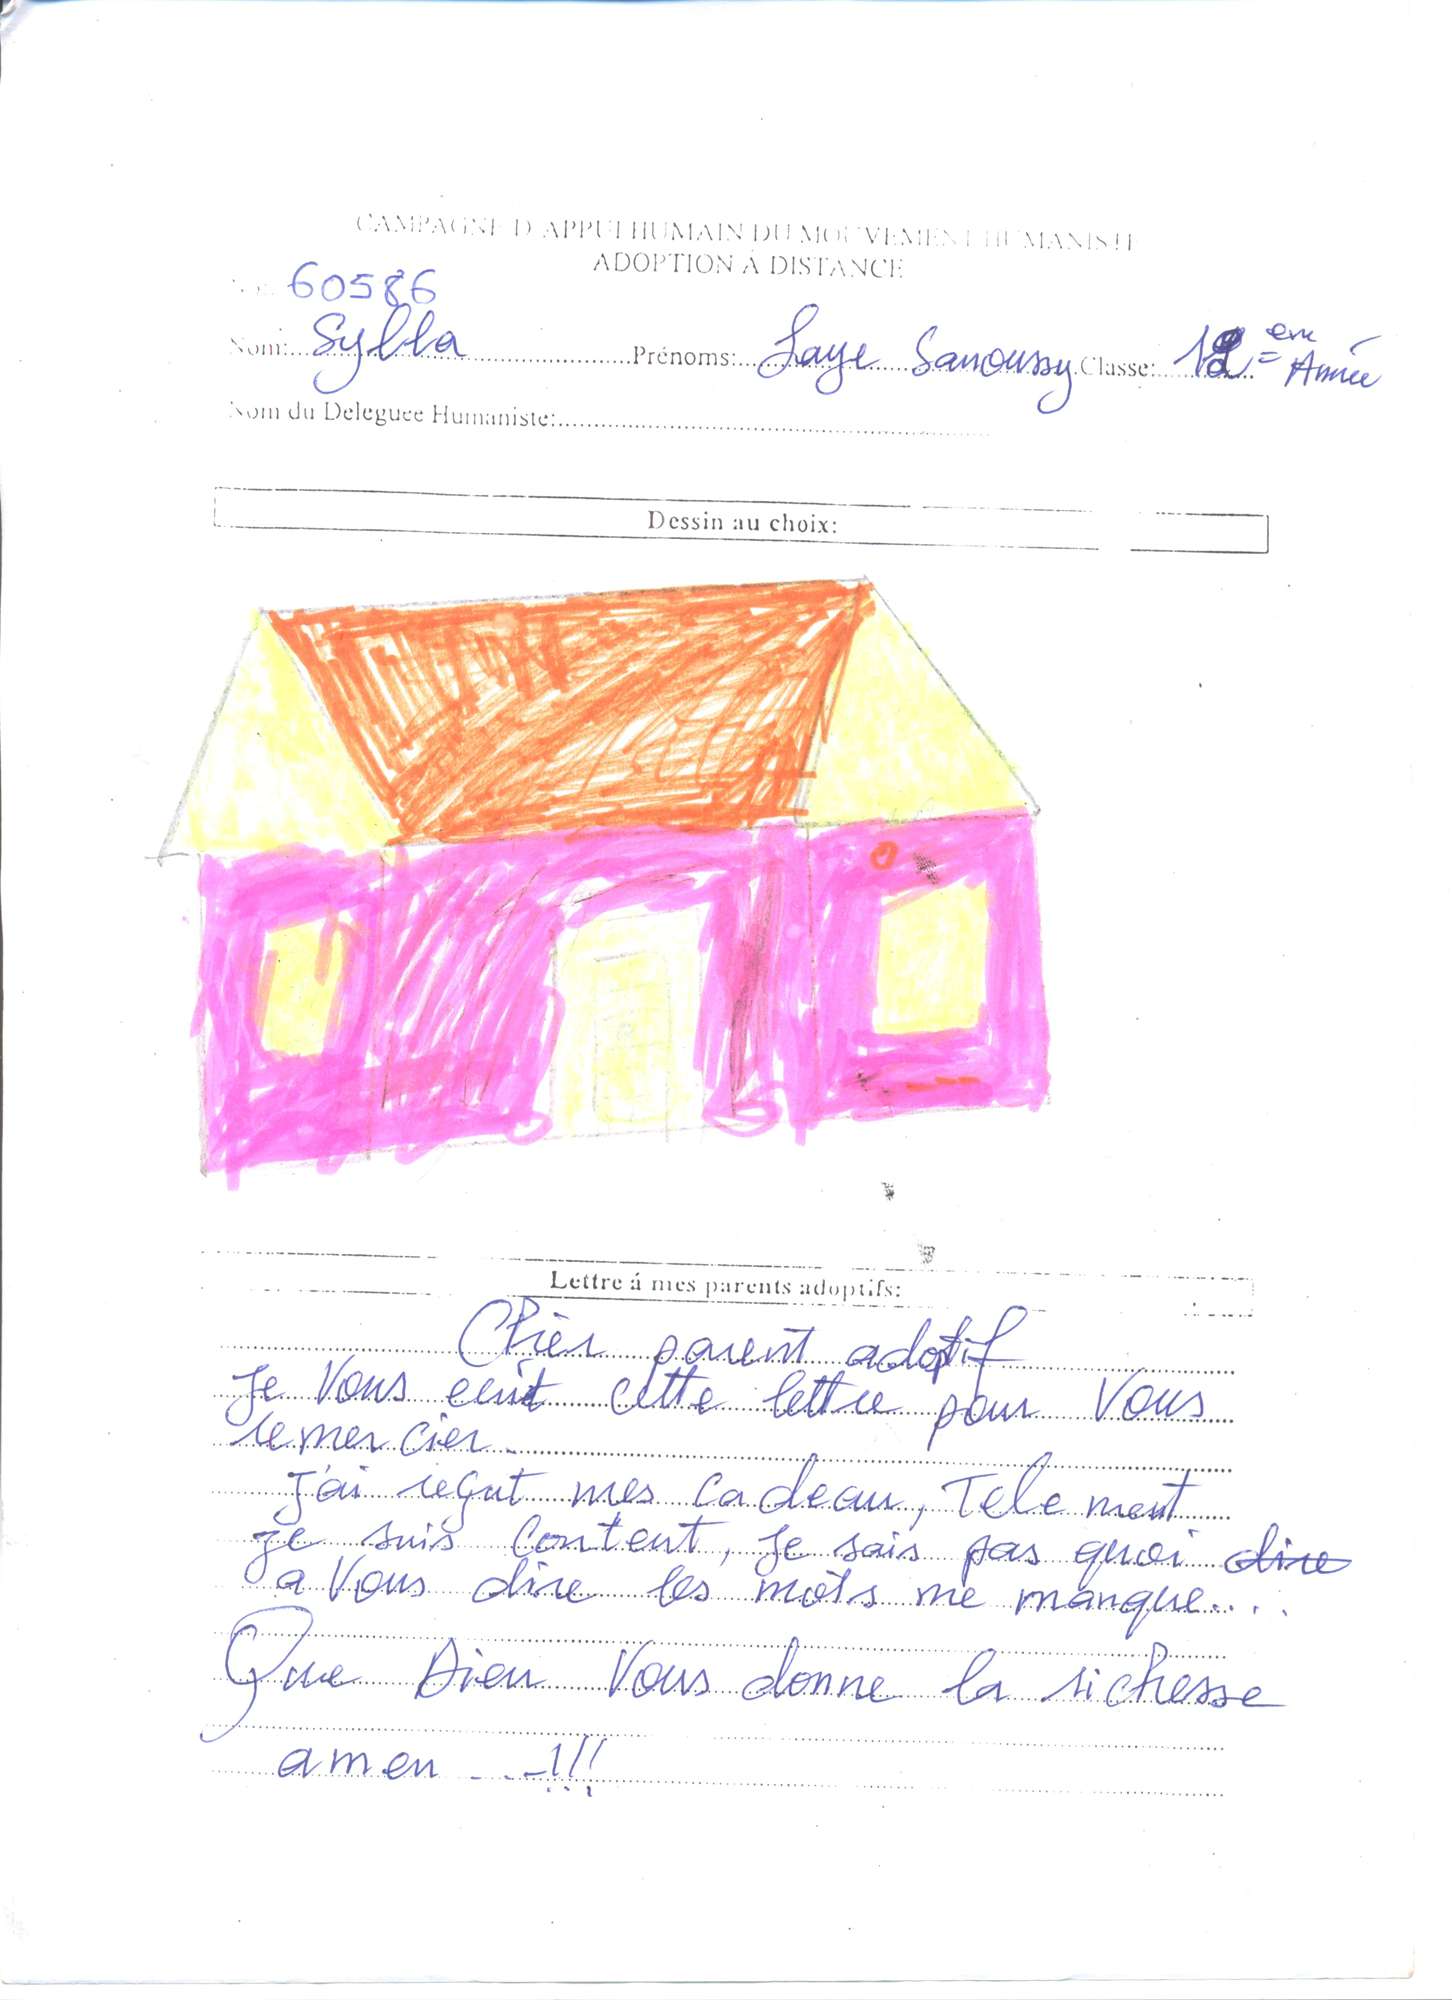 CAMPAGNE D'APPUI HUMAIN DU MOUVEMENT HUMANISTE
ADOPTION Á DISTANCE
60586
Nom: Sylla Prénoms: Laye Sanoussy Classe: 12 em Année
Nom du Deleguee Humaniste:
Dessin au choix:
Lettre á mes parents adoptifs:
Chèr parent adoptif
Je Vous ecrit cette lettre pour Vous
remercier.
J'ai reçut mes cadeau, Telement
je suis content, je sais pas quoi dire
a Vous dire les mots me manque....
Que Dieu Vous donne la richesse
amen ...!!!